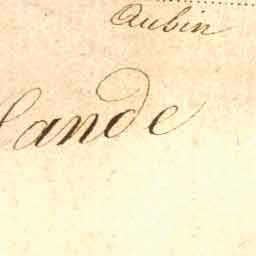 Aubin
Lande